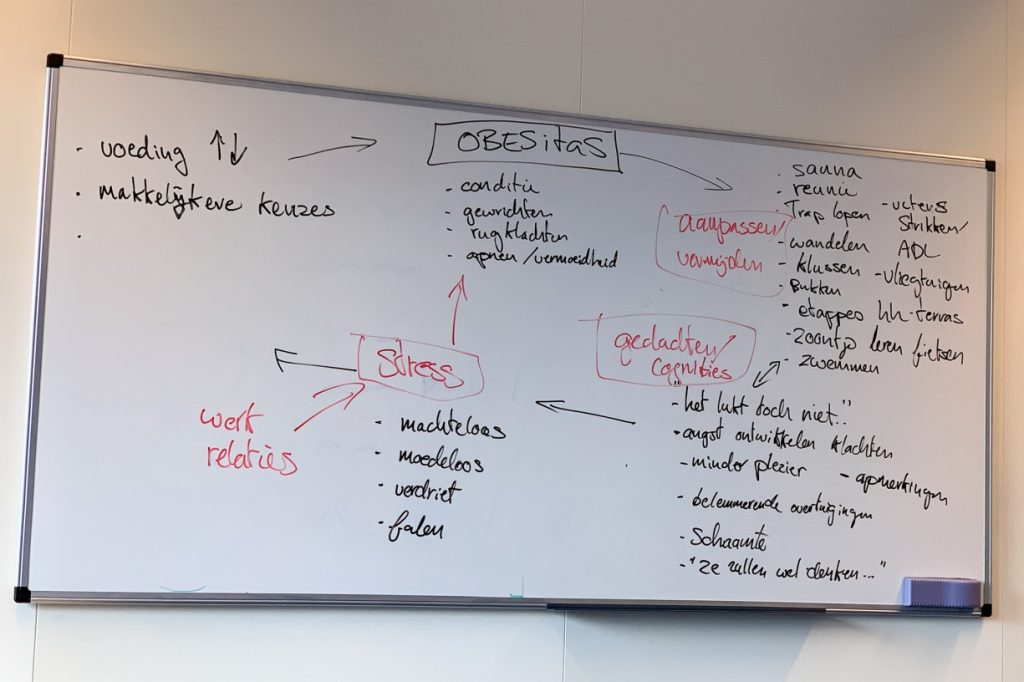 · voeding ↑↓
· makkelijkere keuzes
·
OBESitas
- conditie
- gewrichten
- rugklachten
- apneu/vermoeidheid
aanpassen/
vermijden
· sauna
· reunie
· Trap lopen
- wandelen
- klussen
- Bukken
- etappes hh-terras
- zoontje leren fietsen
- zwemmen
- veters
strikken/
ADL
- vliegtuigen
gedachten/
cognities
- "het lukt toch niet.."
- angst ontwikkelen klachten
- minder plezier
- opmerkingen
- belemmerende overtuigingen
- Schaamte
- "ze zullen wel denken..."
stress
- machteloos
- moedeloos
- verdriet
- falen
werk
relaties